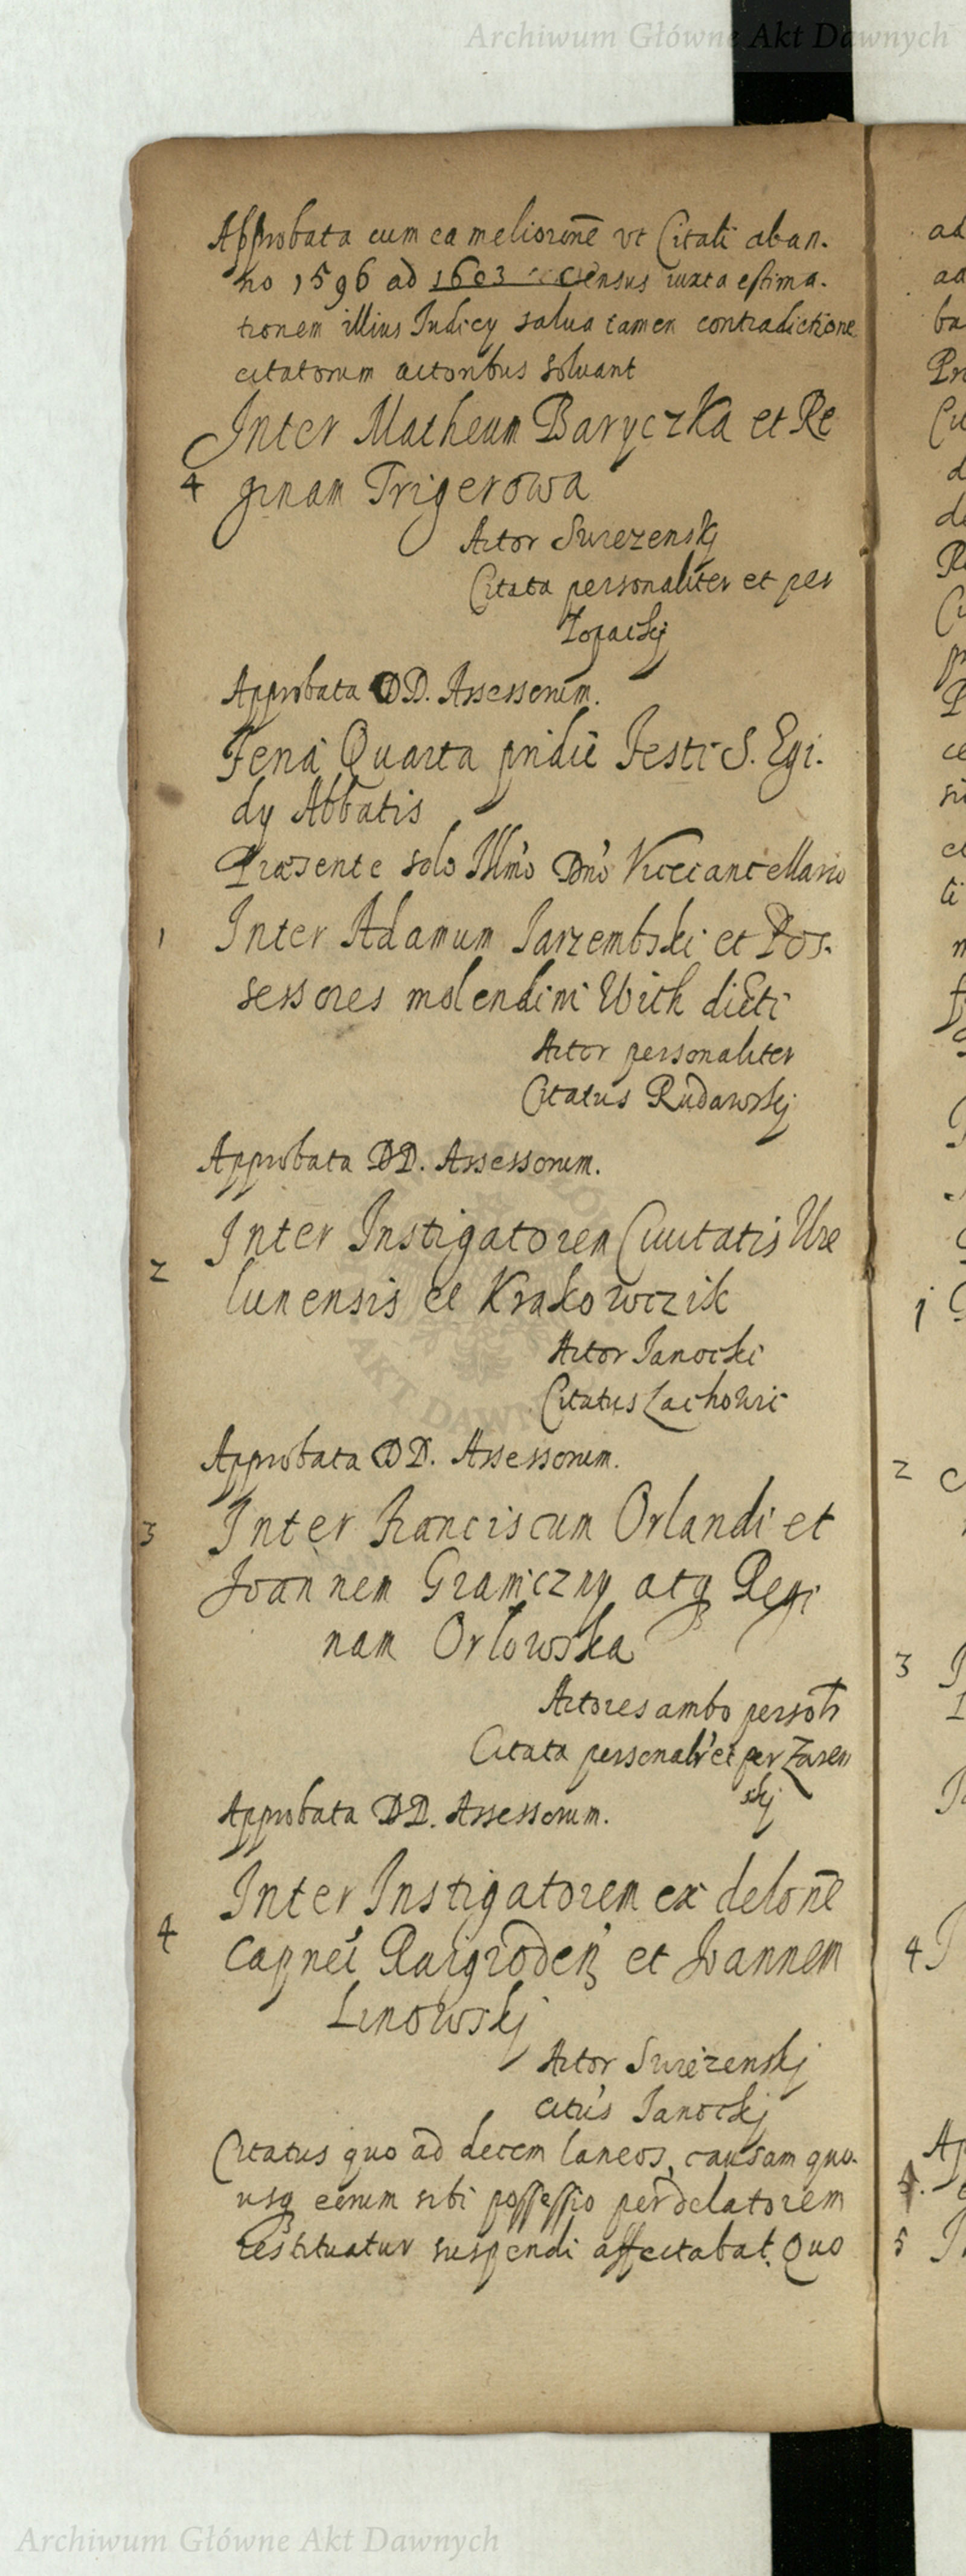 Archiwum Główne Akt Dawnych
Approbata cum ea meliorõne vt Citati aban-
no 1596 ad 1603 census iuxta estima-
tionem illius Judicy salua tamen contradictione
citatorum actoribus soluant
Inter Matheum Baryczka et Re
4 ginam Trigerowa
Actor Swiezenskj
Citata personaliter et per
Lopackj
Approbata DD. Assessorum.
Feria Quarta pridie Festi S. Egi-
dy Abbatis
Præsente solo Illmo Dno Vicecancellario
1 Inter Adamum Jarzembski et Pos-
sessores molendini With dicti
Actor personaliter
Citatus Rudawskj
Approbata DD. Assessorum.
Inter Instigatorem Ciuitatis Wie
2 lunensis et Krakowczik
Actor Janocki
Citatus Lachowic
Approbata DD. Assessorum.
3 Inter Franciscum Orlandi et
Joannem Graniczny atq Regi
nam Orlowska
Actores ambo persolr
Citata personalr et per Zaren
skj
Approbata DD. Assessorum.
Inter Instigatorem ex delone
4 Capnei Raigroden et Joannem
Linowskj
Actor Swiezenskj
citus Janockj
Citatus quo ad decem laneos, causam quo-
usq eorum sibi possessio per delatorem
restituatur suspendi affectabat. Quo
Archiwum Główne Akt Dawnych